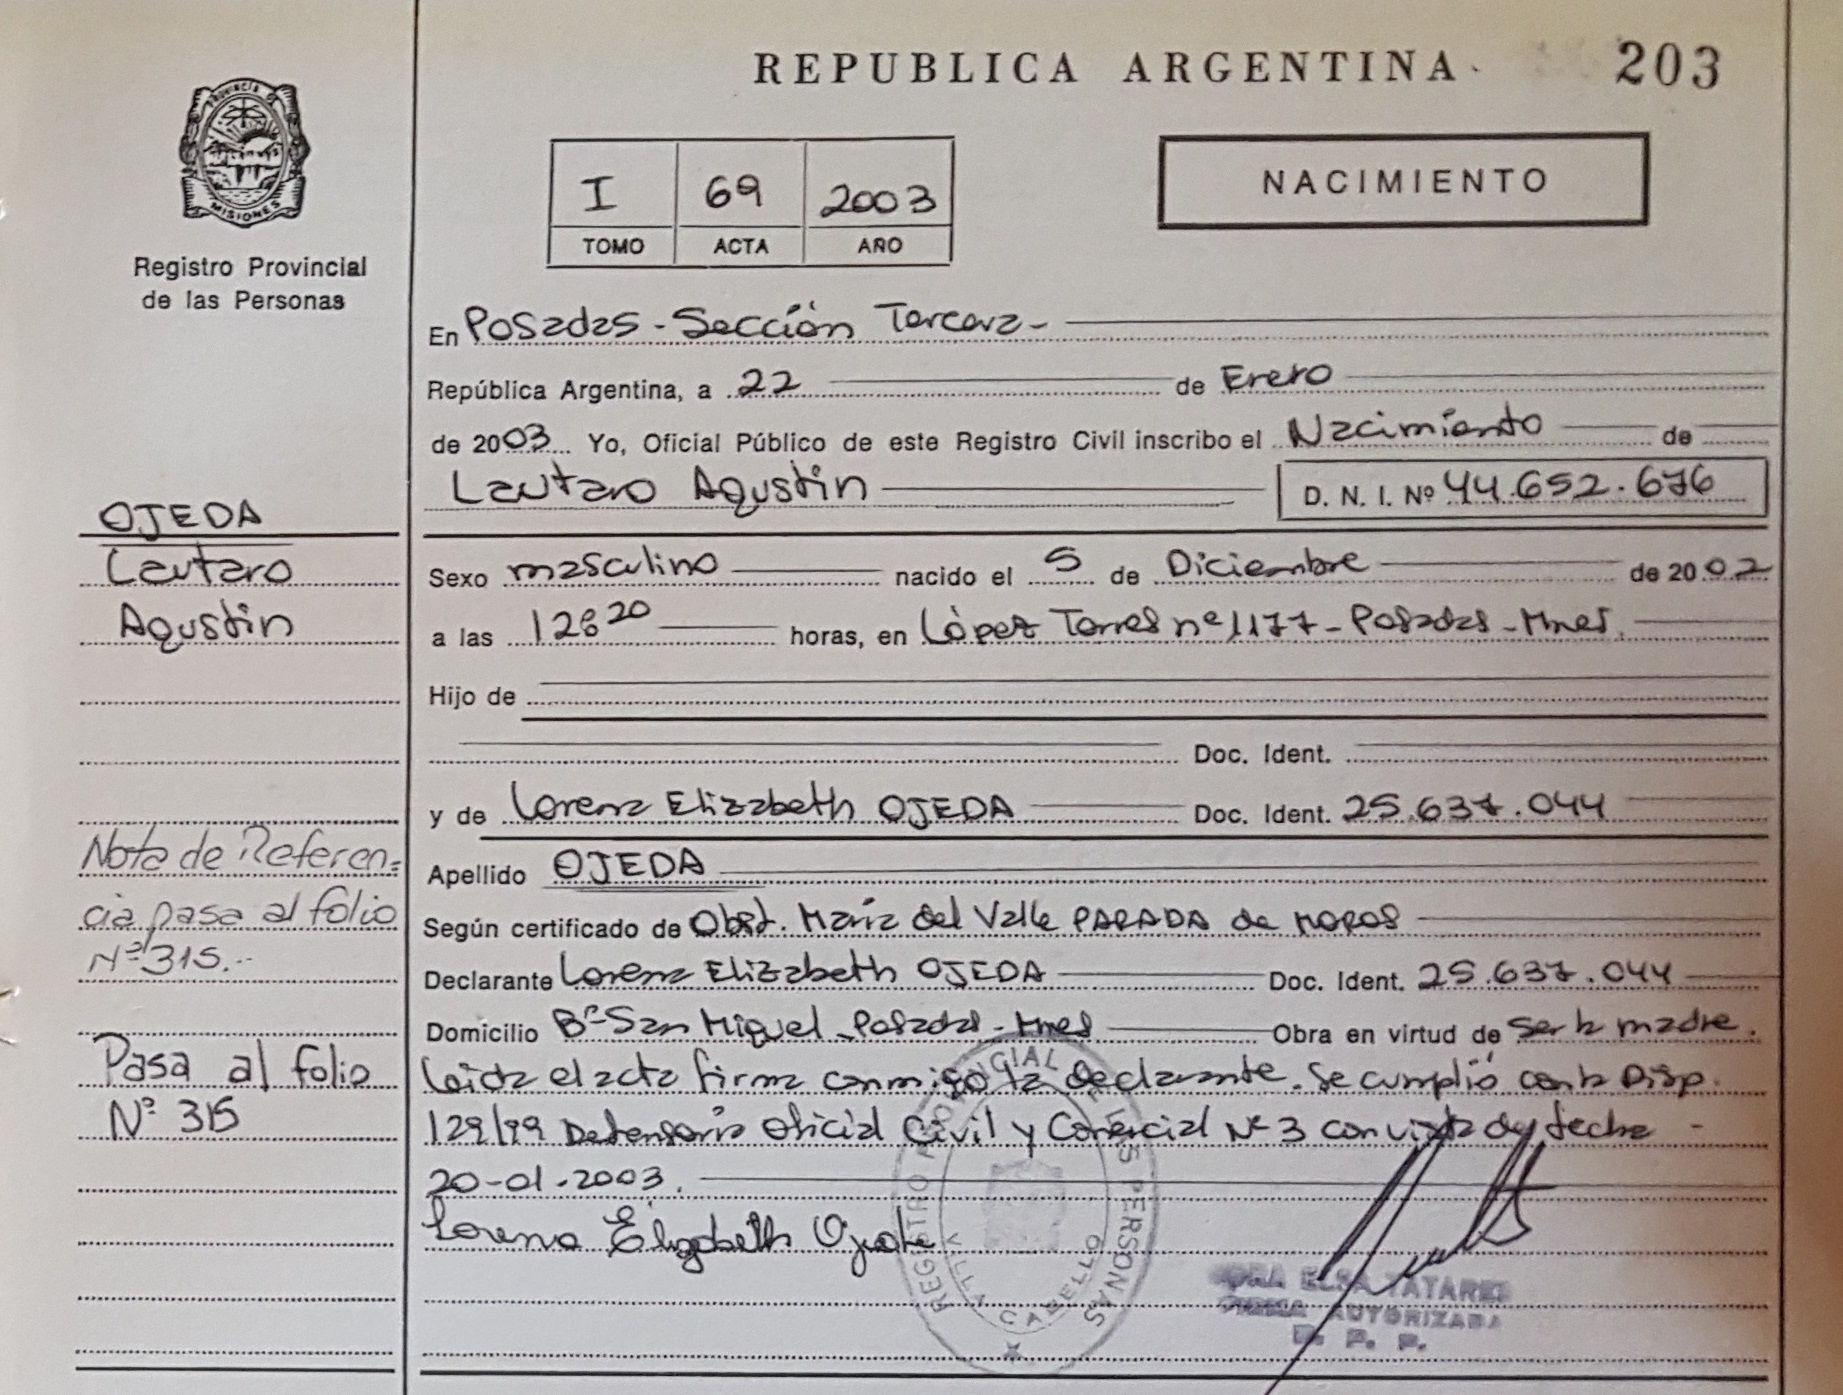 REPUBLICA ARGENTINA
203
PROVINCIA DE
MISIONES
Registro Provincial
de las Personas
I 69 2003
TOMO ACTA AÑO
NACIMIENTO
En Posadas - Sección Tercera -
República Argentina, a 22 de Enero
de 2003 Yo, Oficial Público de este Registro Civil inscribo el Nacimiento de
Lautaro Agustin D. N. I. Nº 44.652.676
OJEDA
Lautaro
Agustin
Sexo masculino nacido el 5 de Diciembre de 2002
a las 12:20 horas, en López Torres nº 1177 - Posadas - Mnes.
Hijo de
Doc. Ident.
y de Lorena Elizabeth OJEDA Doc. Ident. 25.637.044
Apellido OJEDA
Según certificado de Obst. María del Valle PARADA de MOROS
Declarante Lorena Elizabeth OJEDA Doc. Ident. 25.637.044
Domicilio Bº San Miguel - Posadas - Mnes Obra en virtud de ser la madre.
Leida el acta firma conmigo la declarante. Se cumplió con la Disp.
129/99 Defensoria Oficial Civil y Comercial Nº 3 con vista de fecha -
20-01-2003.
Lorena Elizabeth Ojeda
Nota de Referen-
cia pasa al folio
Nº 315.-
Pasa al folio
Nº 315
REGISTRO PROVINCIAL DE LAS PERSONAS
VILLA CABELLO
ELSA
FIRMA AUTORIZADA
R. P. P.